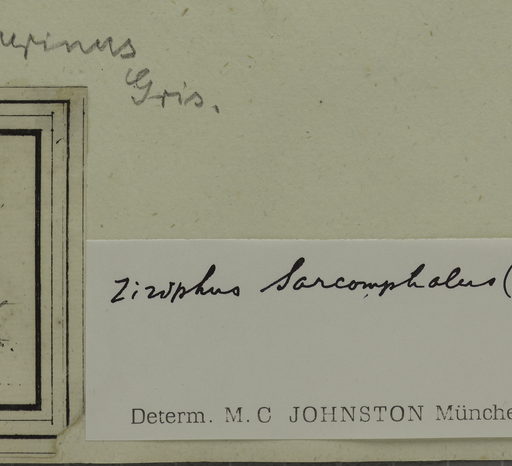 Gris.
Ziziphus Sarcomphalus (
Determ. M. C JOHNSTON Münche